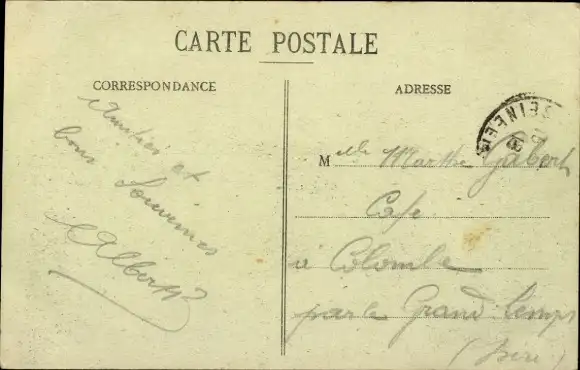 CARTE POSTALE
CORRESPONDANCE
ADRESSE
Amitiés et
bons Souvenirs
Albert
SEINE
Melle Marthe Gabert
Café
à Colombe
par le Grand Lemps
(Isère)